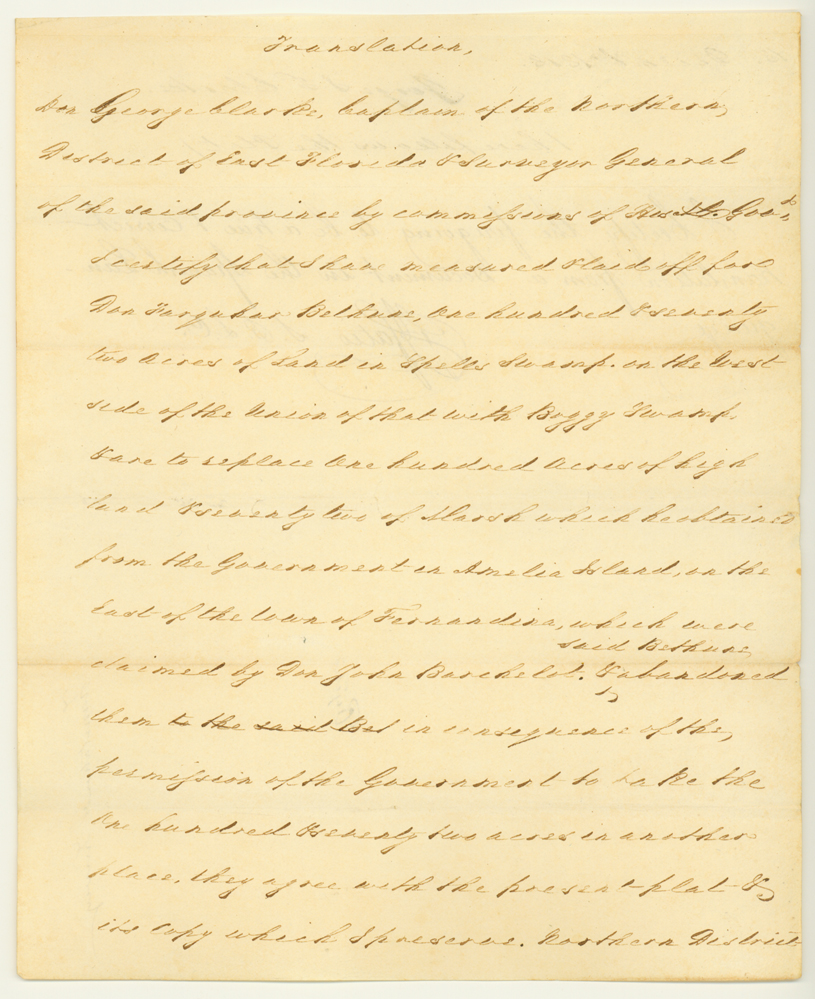 Translation,
Don George Clarke, Captain of the Northern
District of East Florida & Surveyor General
of the said province by commissions of His Govr.
I certify that I have measured & laid off for
Don Farquhar Bethune, One hundred & seventy
two Acres of Land in Spells Swamp. on the West
side of the Union of that with Boggy Swamp.
& are to replace One hundred Acres of high
land & seventy two of Marsh which he obtained
from the Government in Amelia Island, on the
East of the town of Fernandina, which were
said Bethune
claimed by Don John Barchelot. & abandoned
them to the said Bet in consequence of the,
permission of the Government to take the
One hundred & seventy two acres in another
place, they agree with the present plat &
its Copy which I preserve. Northern District